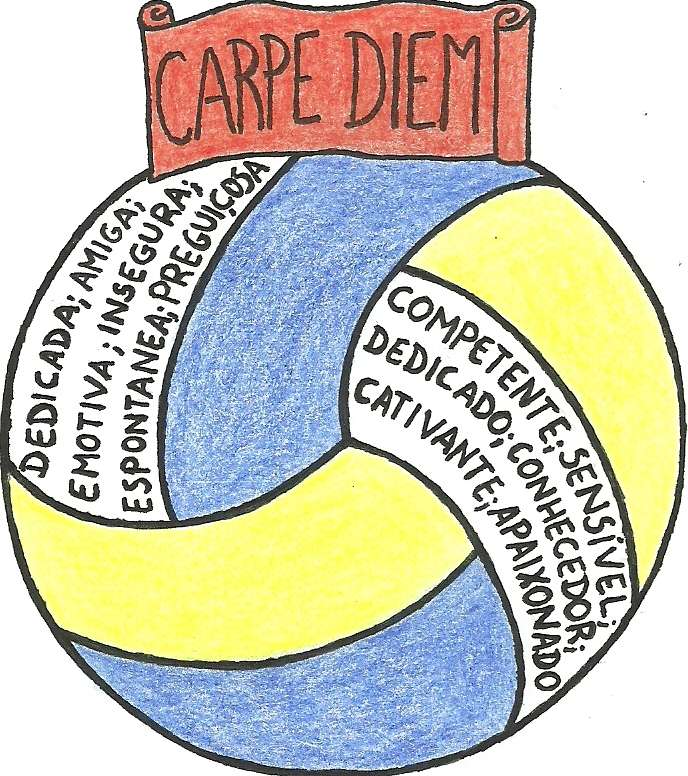 CARPE DIEM
DEDICADA; AMIGA;
EMOTIVA; INSEGURA;
ESPONTANEA; PREGUIÇOSA
COMPETENTE; SENSÍVEL;
DEDICADO; CONHECEDOR;
CATIVANTE; APAIXONADO